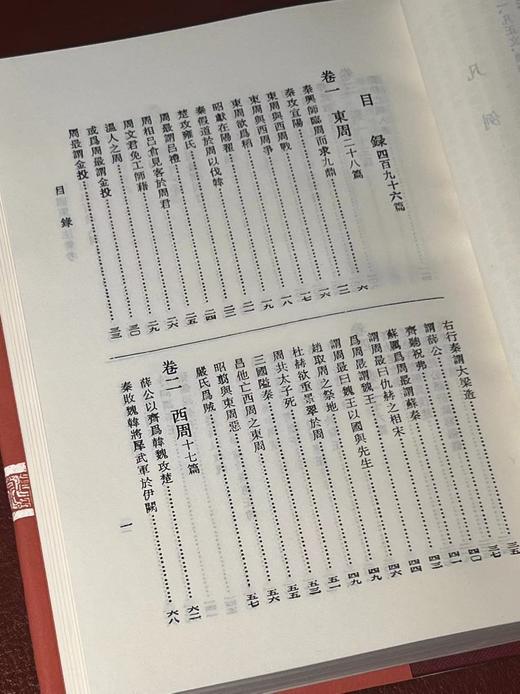 目　錄 四百九十六篇
卷一　東周 二十八篇
秦興師臨周而求九鼎……六
秦攻宜陽……一二
東周與西周戰……一六
東周與西周爭……一七
東周欲爲稻……一八
昭獻在陽翟……一九
秦假道於周以伐韓……二一
楚攻雍氏……二二
周最謂呂禮……二四
周相呂倉見客於周君……二五
周文君免工師藉……二六
溫人之周……二九
或爲周最謂金投……三〇
周最謂金投……三三
右行秦謂大梁造……三五
謂薛公……三七
齊聽祝弗……四〇
蘇厲爲周最謂蘇秦……四一
謂周最曰仇赫之相宋……四三
爲周最謂魏王……四四
謂周最曰魏王以國與先生……四六
趙取周之祭地……四九
杜赫欲重景翠於周……四九
周共太子死……五一
三國隘秦……五三
昌他亡西周之東周……五五
昭翦與東周惡……五五
嚴氏爲賊……五七
卷二　西周 十七篇
薛公以齊爲韓魏攻楚……六二
秦敗魏韓將犀武軍於伊闕……六八
目　錄
一
凡　例